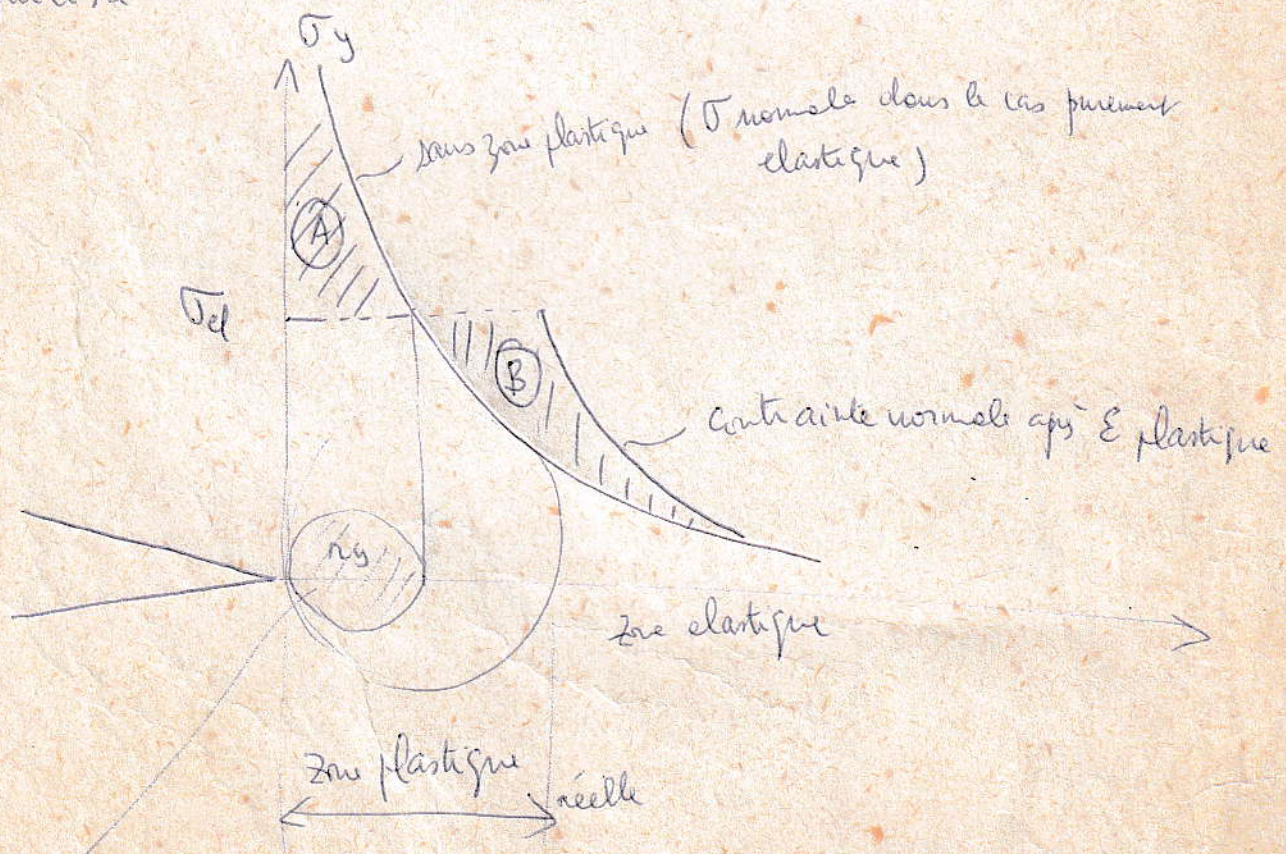 σy
sans zone plastique (σ normale dans le cas purement
elastique)
A
σel
B
contrainte normale après ε plastique
ry
zone elastique
zone plastique
réelle